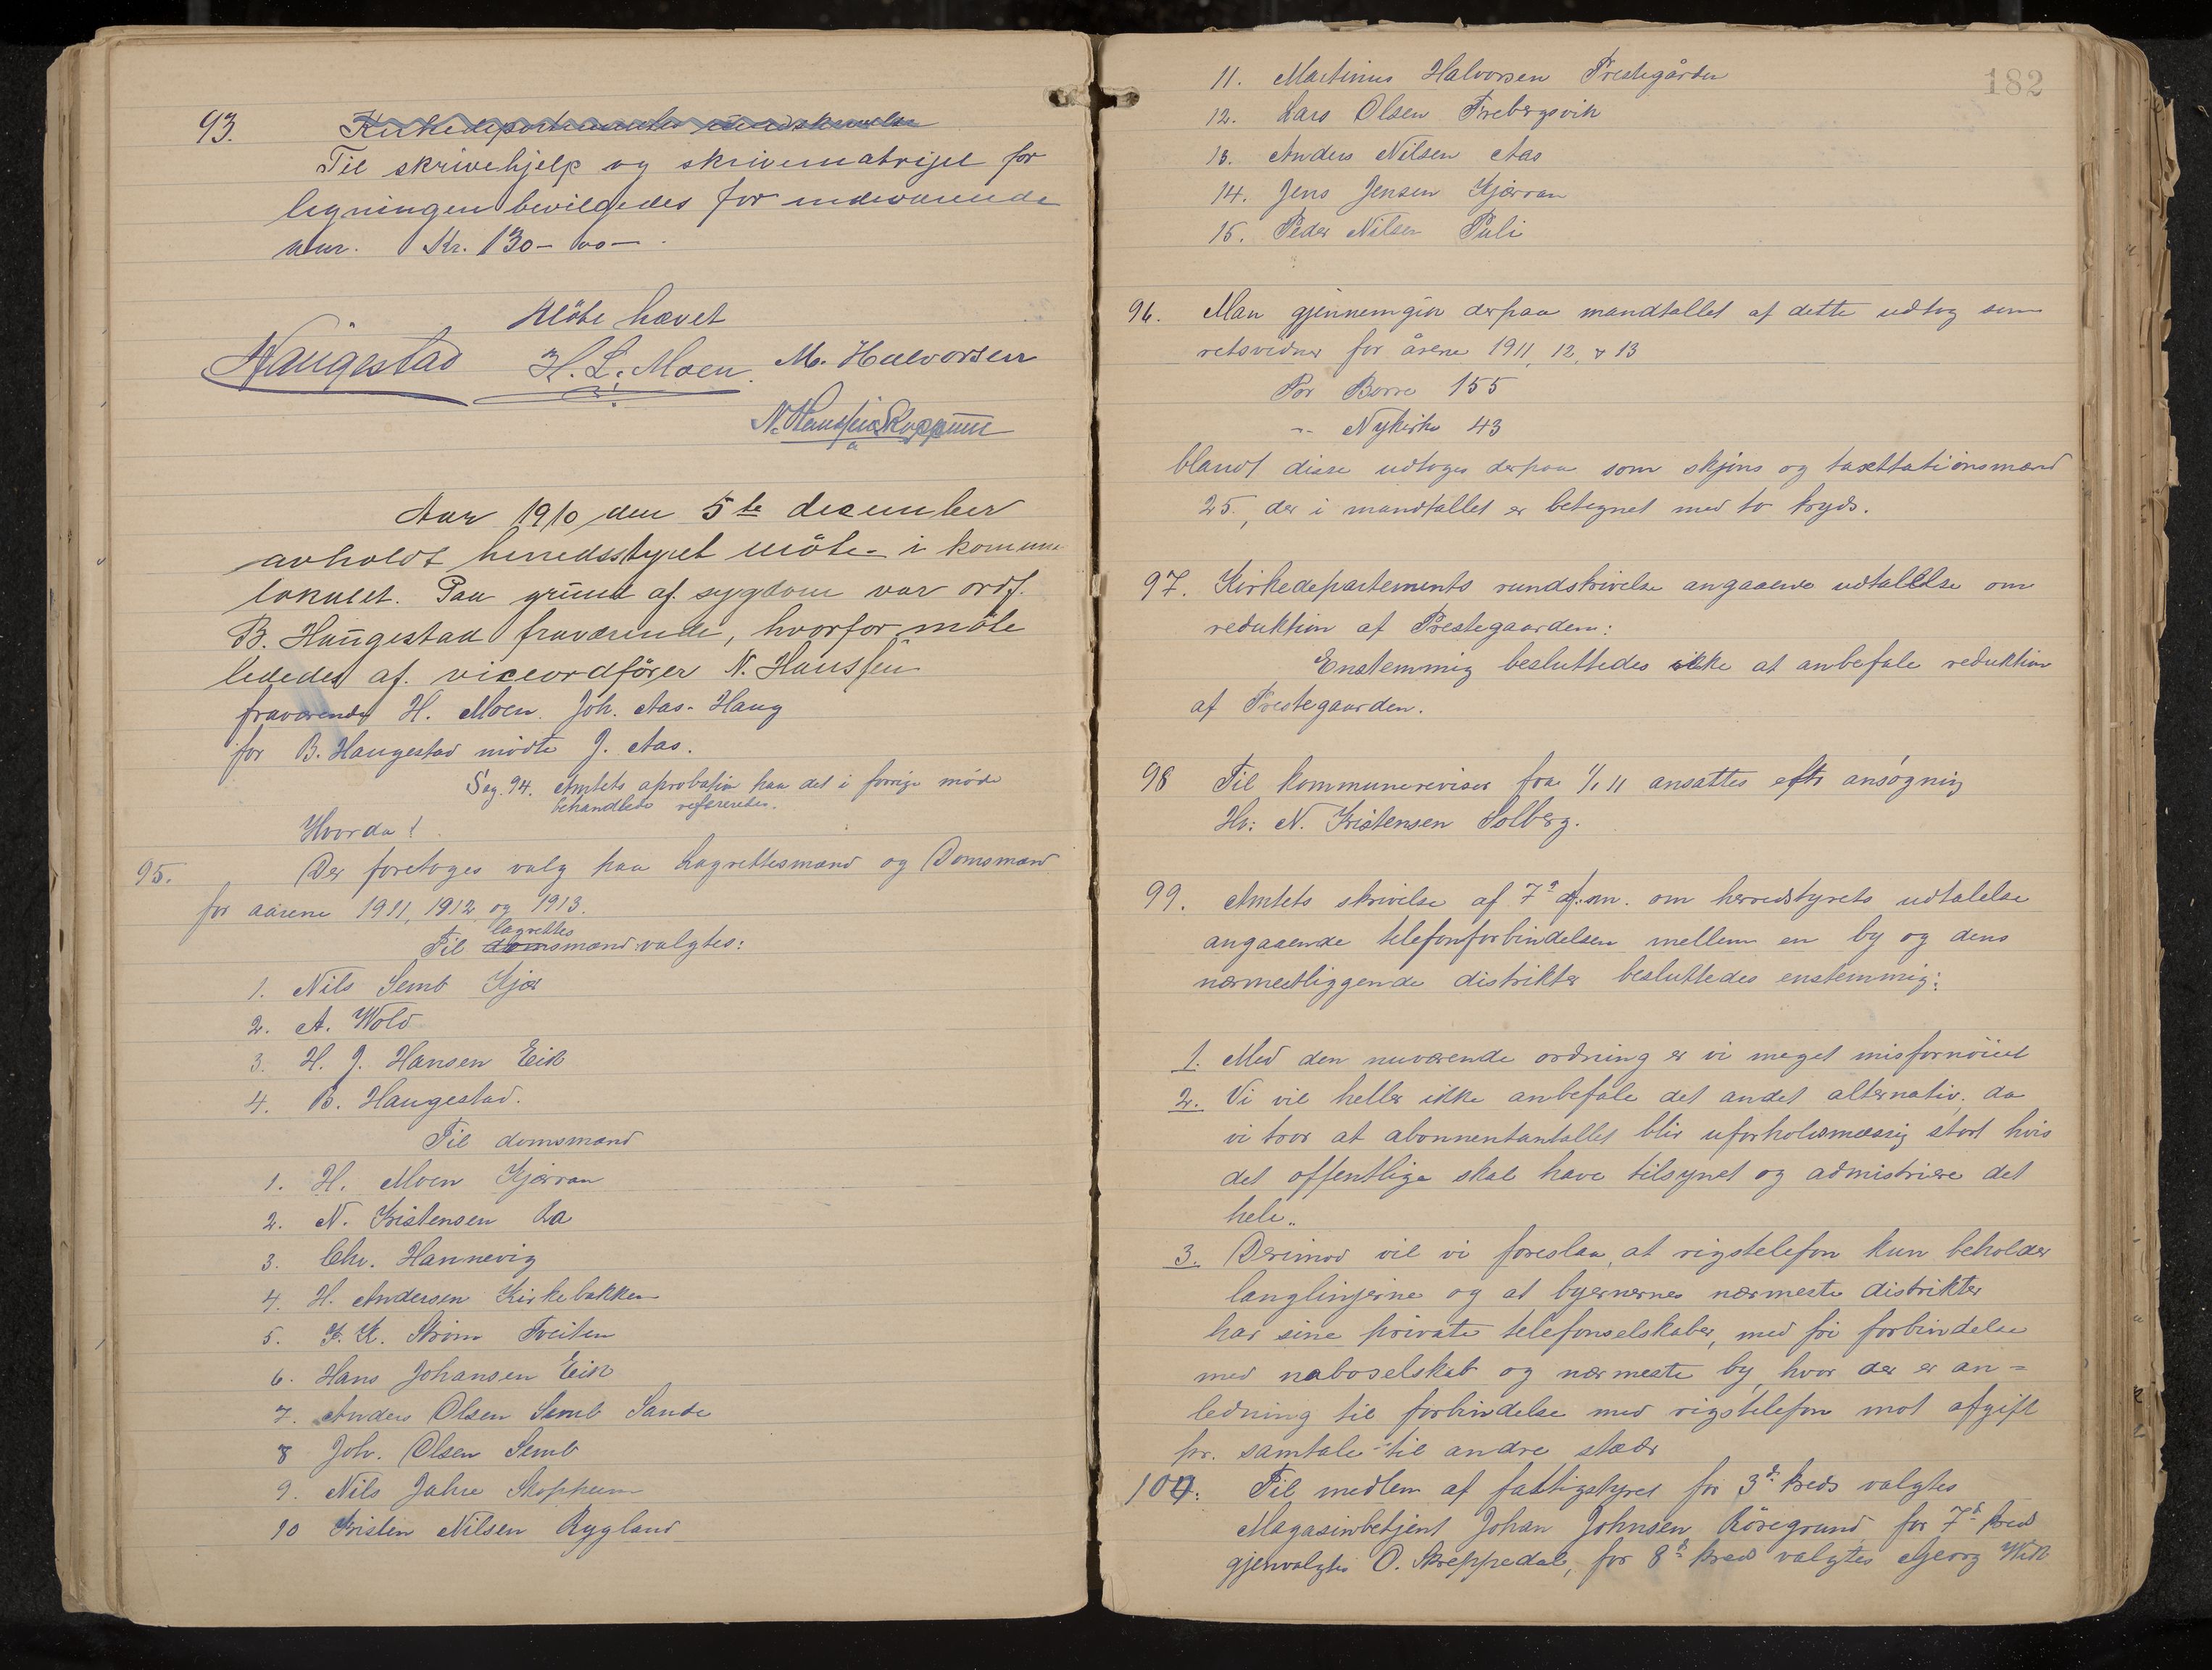 93. Kirkedepartementets rundskrivelse
Til skrivehjelp og skrivematrijel for
ligningen bevilgedes for indeværende
aar. Kr. 130-00-.
Möte hævet
Haugestad H. L. Moen. M. Halvorsen
N. Hanssen Skoppum
Aar 1910 den 5te desember
avholdt herredsstyret möte i komune
lokalet. Paa grund af. sygdom var ordf.
B. Haugestad fraværende, hvorfor möte
lededes af. viceordförer N. Hanssen
fraværende H. Moen. Joh. Aas. Haug
for B. Haugestad mödte J. Aas.
Sag. 94. Amtets aprobation paa det i forrige möde
behandlede refereredes.
Hvorda!
95. Der foretoges valg paa Lagrettesmænd og Domsmænd
for aarene 1911, 1912 og 1913.
lagrettes
Til domsmænd valgtes:
1. Nils Semb Kjær
2. A. Wold
3. H. J. Hansen Eik
4. B. Haugestad.
Til domsmænd
1. H. Moen Kjærran
2. N. Kristensen Ra
3. Chr. Hannevig
4. H. Andersen Kirkebakken
5. K. K. Strøm Tveiten
6. Hans Johansen Eik
7. Anders Olsen Semb Sande
8 Joh. Olsen Semb
9. Nils Jahre Skoppum
10 Kristen Nilsen Rygland
182
11. Martinius Halvorsen Prestegården
12. Lars Olsen Frebergsvik
13. Anders Nilsen Aas
14. Jens Jensen Kjærran
15. Peder Nilsen Puli
96. Man gjennemgik derpaa mandtallet af dette udtog som
retsvidner for årene 1911, 12, & 13
For Borre 155
"- Nykirke 43
blandt disse udtoges derpaa som skjöns og taxtationsmænd
25., der i mandtallet er betegnet med to kryds.
97. Kirkedepartements rundskrivelse angaaende udtallelse om
reduktion af Prestegaarden:
Enstemmig besluttedes ikke at anbefale reduktion
af Prestegaarden.
98 Til kommunerevisor fra 1/1 11 ansattes efter ansøgning
Hr: N. Kristensen Solberg.
99. Amtets skrivelse af 7de d.m. om herredstyrets udtalelse
angaaende telefonforbindelsen mellem en by og dens
nærmestliggende distrikter besluttedes enstemmig:
1. Med den nuværende ordning er vi meget misfornöiet
2. Vi vil heller ikke anbefale det andet alternativ, da
vi tror at abonnentantallet blir uforholdsmæssig stort hvis
det offentlige skal have tilsynet og admistriere det
hele.
3. Derimod vil vi foreslaa, at rigstelefon kun beholder
langlinjerne og at byernernes nærmeste distrikter
har sine private telefonselskaber, med fri forbindelse
med naboselskab og nærmeste by, hvor der er an=
ledning til forbindelse med rigstelefon mot afgift
pr. samtale til andre stæder
100. Til medlem af fattigstyret for 3de kreds valgtes
Magasinbetjent Johan Johnsen, Röregrund for 7de kreds
gjenvalgtes O. Skreppedal, for 8de kreds valgtes Georg Wik